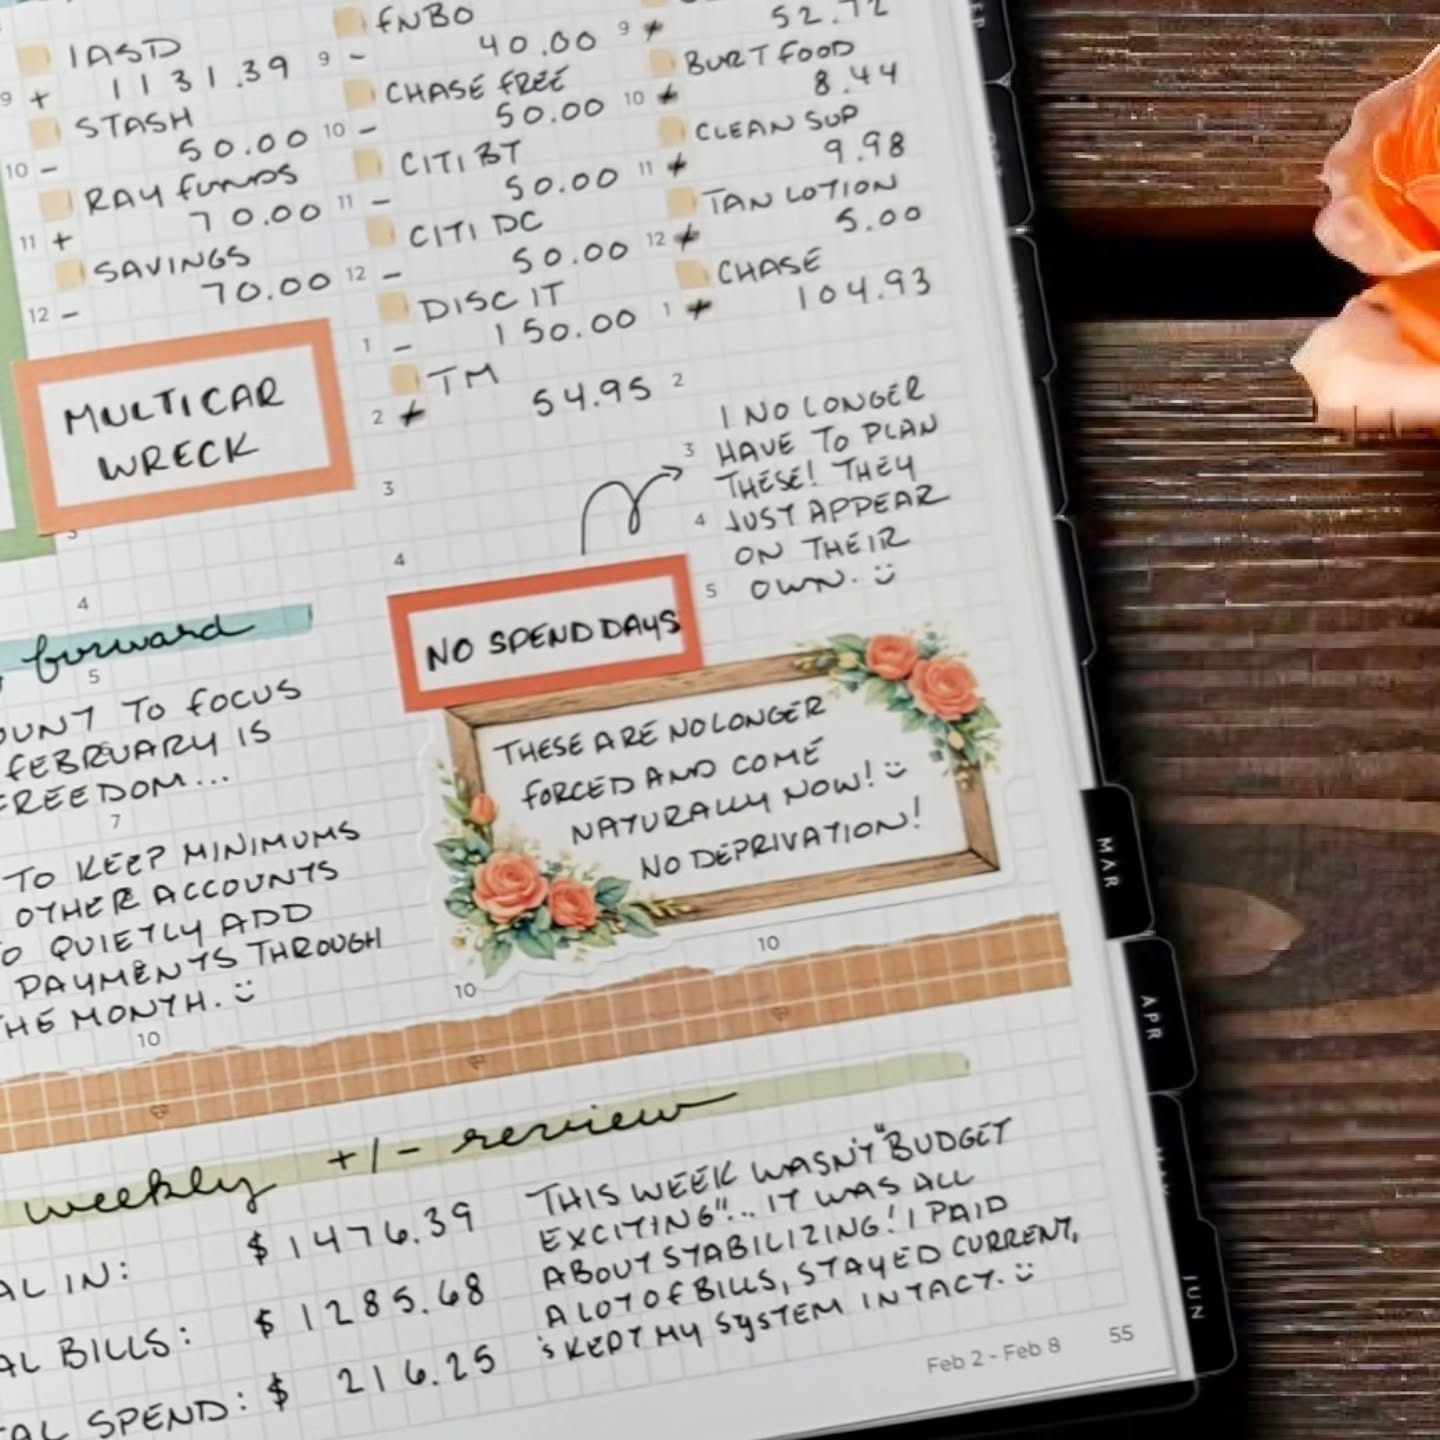 IASD
9 + 1131.39
STASH
10 - 50.00
RAY FUNDS
11 + 70.00
SAVINGS
12 - 70.00
MULTICAR
WRECK
3
4
forward
5
TO FOCUS
FEBRUARY IS
FREEDOM...
7
TO KEEP MINIMUMS
OTHER ACCOUNTS
QUIETLY ADD
PAYMENTS THROUGH
THE MONTH. :)
10
FNBO
9 - 40.00
CHASE FREE
10 - 50.00
CITI BT
11 - 50.00
CITI DC
12 - 50.00
DISC IT
1 - 150.00
TM
2 + 54.95
3
4
NO SPEND DAYS
THESE ARE NO LONGER
FORCED AND COME
NATURALLY NOW! :)
NO DEPRIVATION!
10
9 + 52.72
BURT FOOD
10 + 8.44
CLEAN SUP
11 + 9.98
TAN LOTION
12 + 5.00
CHASE
1 + 104.93
2
I NO LONGER
3 HAVE TO PLAN
THESE! THEY
4 JUST APPEAR
ON THEIR
5 OWN. :)
10
weekly +/- review
IN: $1476.39
BILLS: $1285.68
SPEND: $ 216.25
THIS WEEK WASN'T "BUDGET
EXCITING"... IT WAS ALL
ABOUT STABILIZING! I PAID
A LOT OF BILLS, STAYED CURRENT,
& KEPT MY SYSTEM INTACT. :)
Feb 2 - Feb 8 55
MAR
APR
JUN